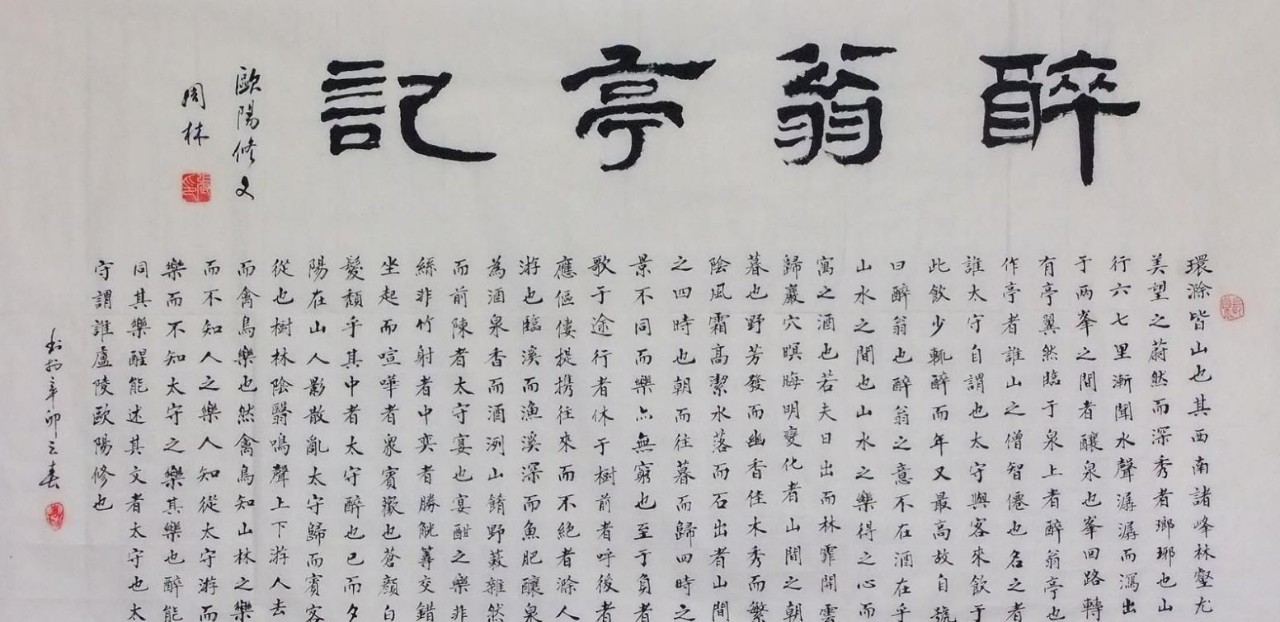 醉翁亭記
歐陽修文
周林
環滁皆山也其西南諸峰林壑尤
美望之蔚然而深秀者瑯琊也山
行六七里漸聞水聲潺潺而瀉出
于兩峯之間者釀泉也峯回路轉
有亭翼然臨于泉上者醉翁亭也
作亭者誰山之僧智僊也名之者
誰太守自謂也太守與客來飲于
此飲少輒醉而年又最高故自號
曰醉翁也醉翁之意不在酒在乎
山水之間也山水之樂得之心而
寓之酒也若夫日出而林霏開雲
歸巖穴暝晦明變化者山間之朝
暮也野芳發而幽香佳木秀而繁
陰風霜高潔水落而石出者山間
之四時也朝而往暮而歸四時之
景不同而樂亦無窮也至于負者
歌于途行者休于樹前者呼後者
應傴僂提携往來而不絕者滁人
游也臨溪而漁溪深而魚肥釀泉
為酒泉香而酒洌山餚野蔌雜然
而前陳者太守宴也宴酣之樂非
絲非竹射者中奕者勝觥籌交錯
坐起而喧嘩者衆賓歡也蒼顏白
髮頹乎其中者太守醉也已而夕
陽在山人影散亂太守歸而賓客
從也樹林陰翳鳴聲上下游人去
而禽鳥樂也然禽鳥知山林之樂
而不知人之樂人知從太守游而
樂而不知太守之樂其樂也醉能
同其樂醒能述其文者太守也太
守謂誰廬陵歐陽修也
書於辛卯之春